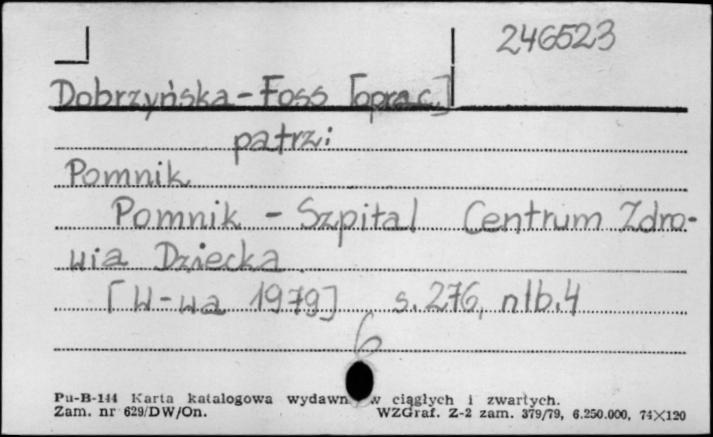 246523
Dobrzyńska-Foss [oprac.]
patrz:
Pomnik
Pomnik - Szpital Centrum Zdro-
wia Dziecka
[W-wa 1979] s. 276, nlb. 4
6
Pu-B-144 Karta katalogowa wydawn w ciągłych i zwartych.
Zam. nr 629/DW/On. WZGraf. Z-2 zam. 379/79, 6.250.000, 74×120